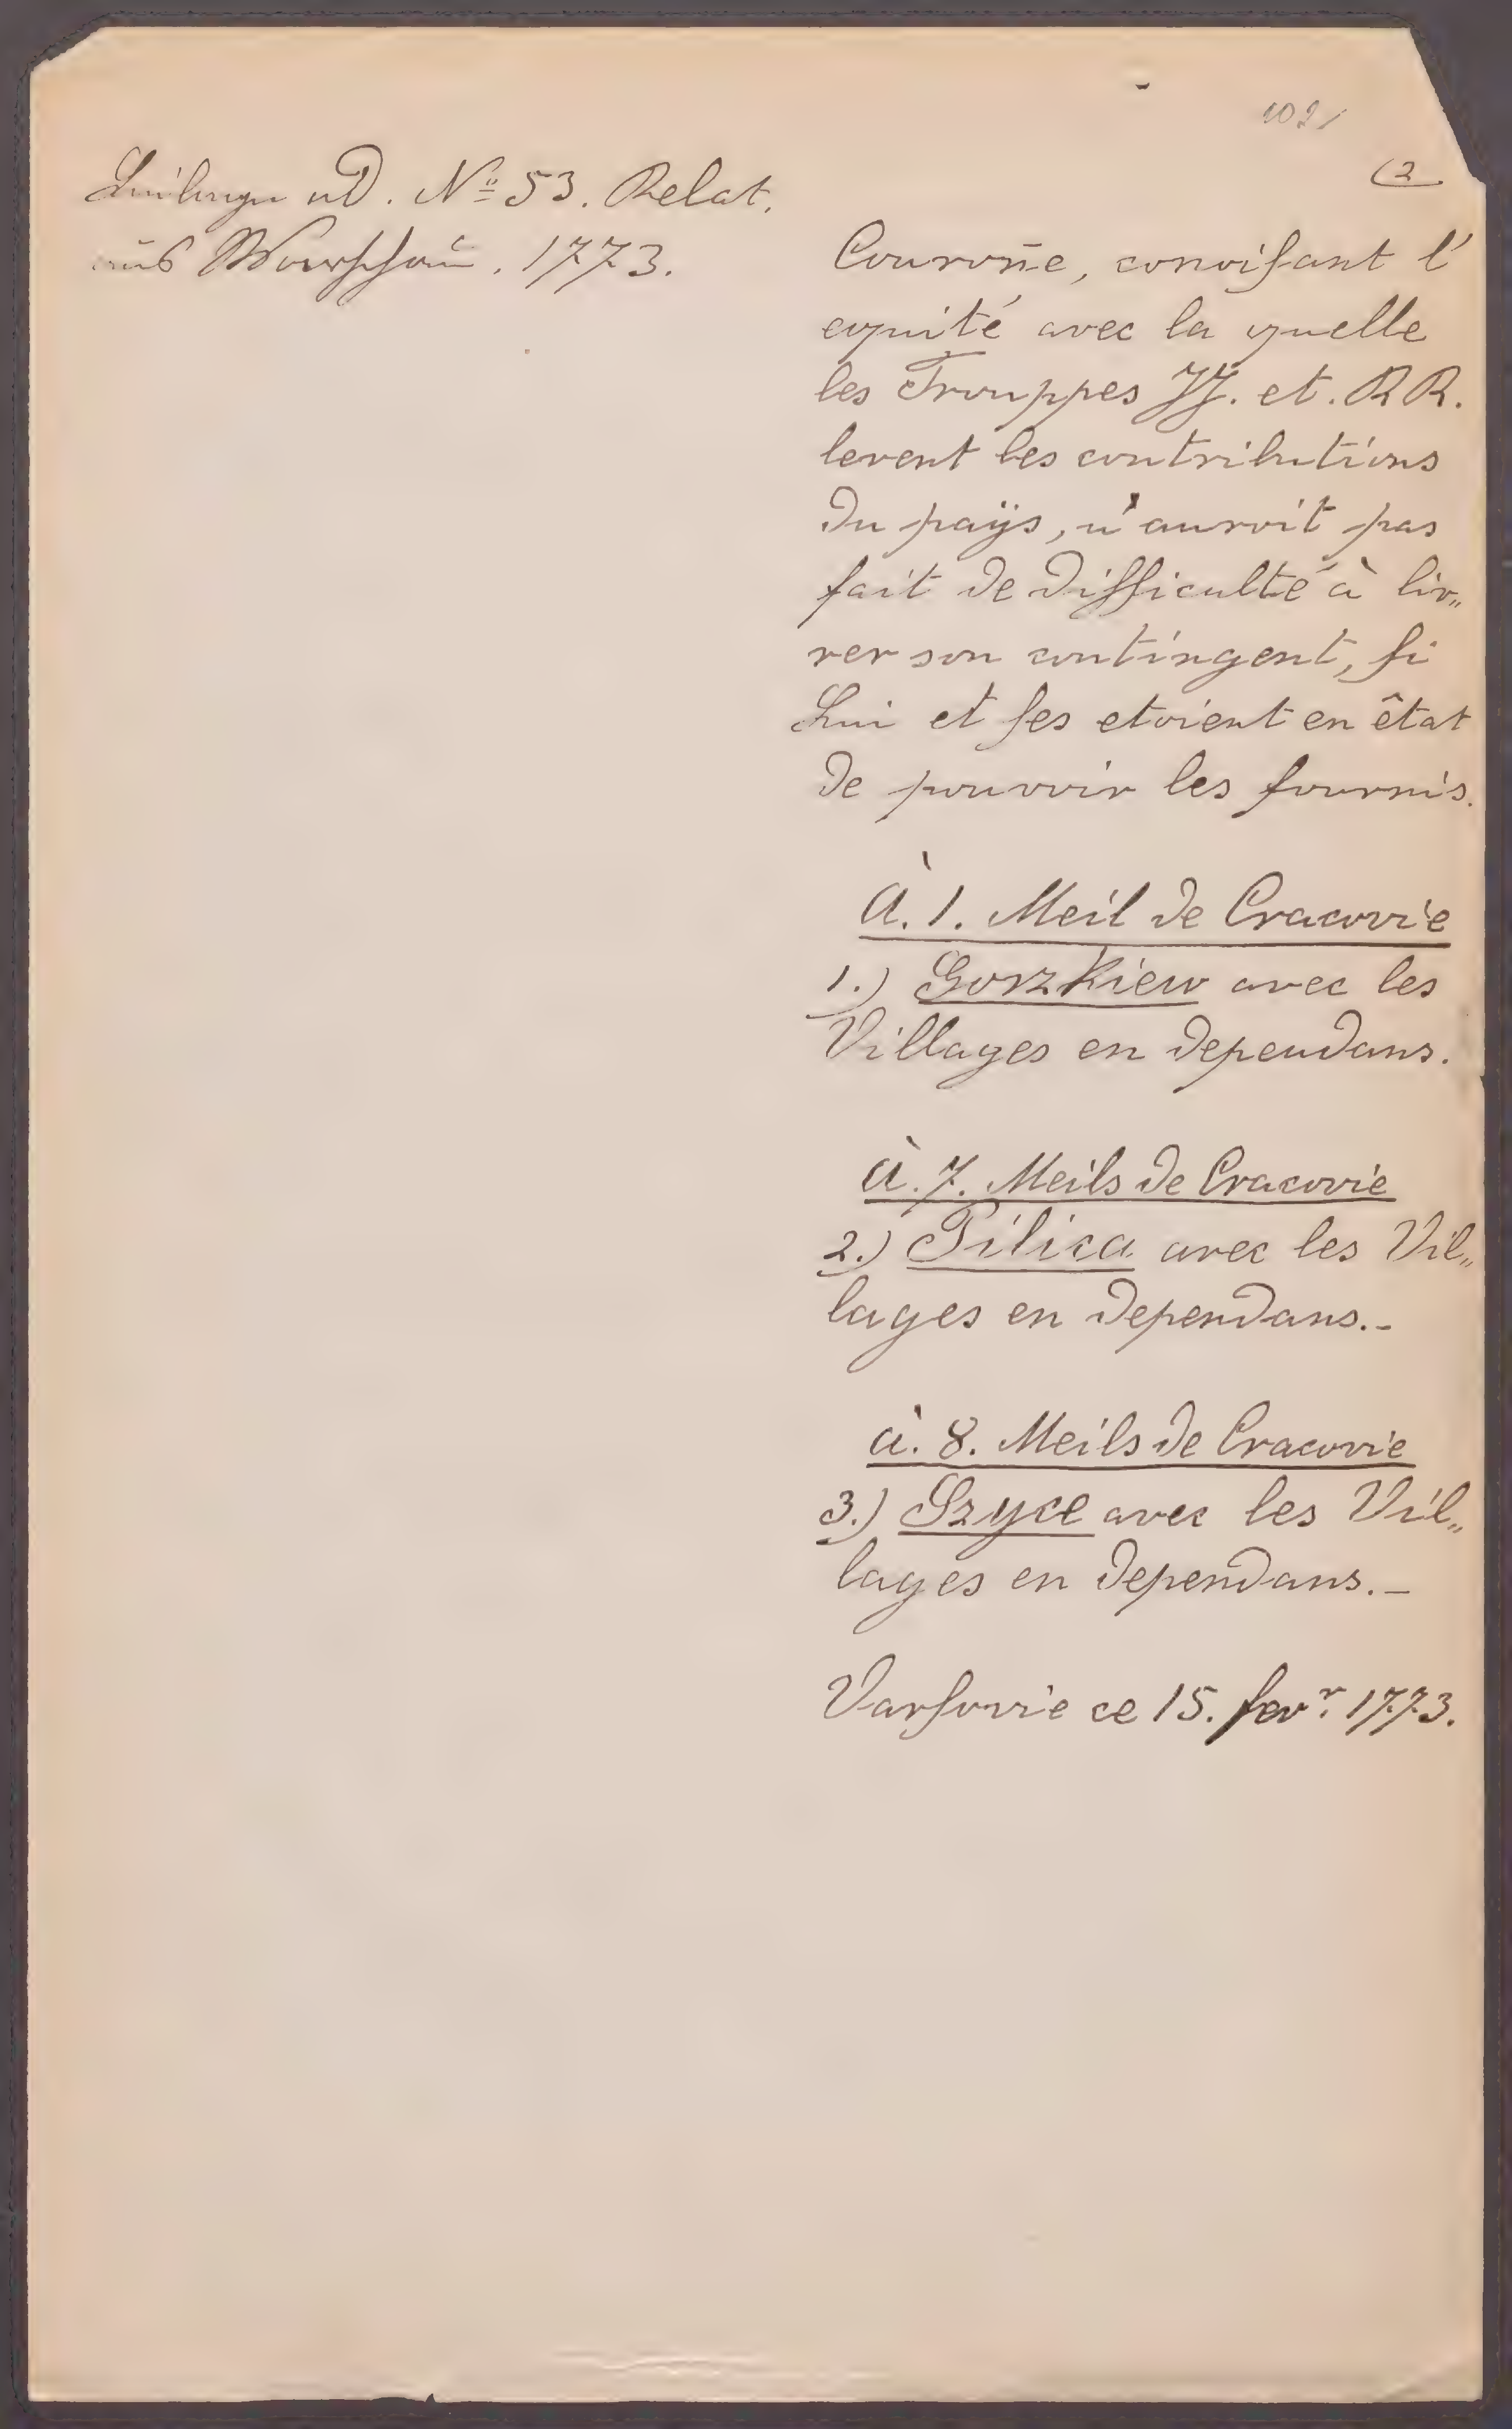 102
(2
Beilage ad. No 53. Relat.
aus Warschau. 1773.
Couron̄e, connoiſsant l'
equité avec la quelle
les Trouppes JJ. et. RR.
levent les contributions
du paÿs, n'auroit pas
fait de difficulté à liv„
rer son contingent, ſi
Lui et ſes etoient en êtat
de pouvoir les fournis.
À. 1. Meil de Cracovie
1.) Gorzkiew avec les
Villages en dependans.
À. 7. Meils de Cracovie
2.) Pilica avec les Vil„
lages en dependans.-
à. 8. Meils de Cracovie
3.) Szyce avec les Vil„
lages en dependans.-
Varſovie ce 15. fevr. 1773.